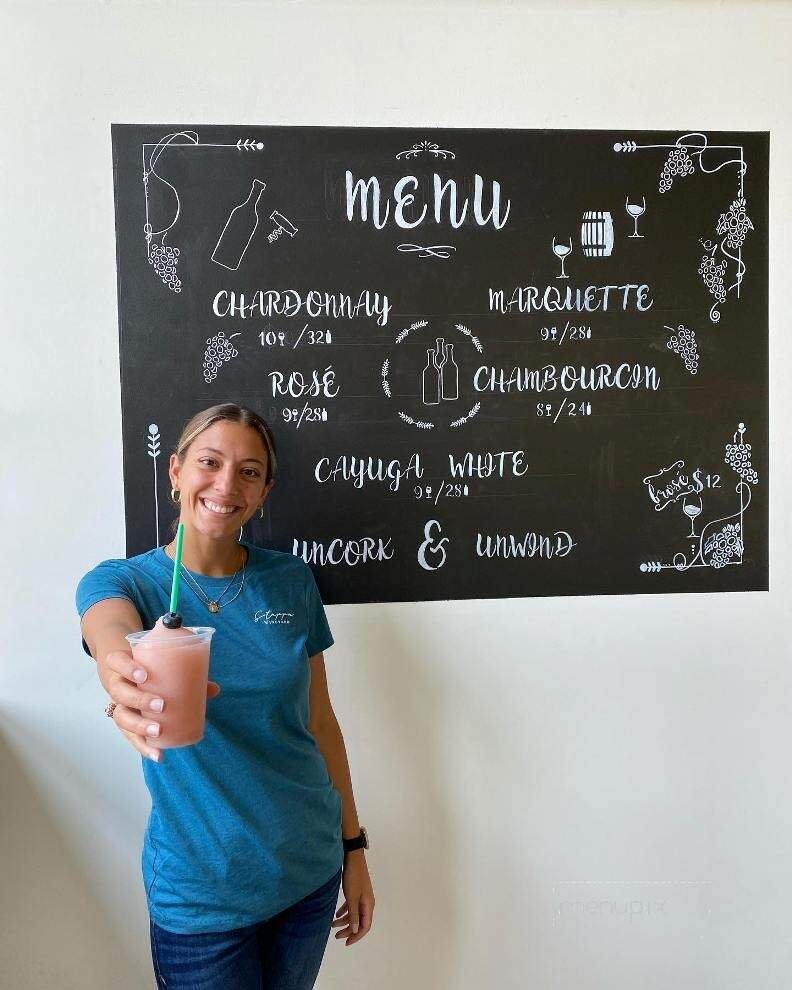 MENU
CHARDONNAY
10/32
MARQUETTE
9/28
ROSÉ
9/28
CHAMBOURCIN
8/24
CAYUGA WHITE
9/28
brosé $12
UNCORK & UNWIND
VINEYARD
menupix